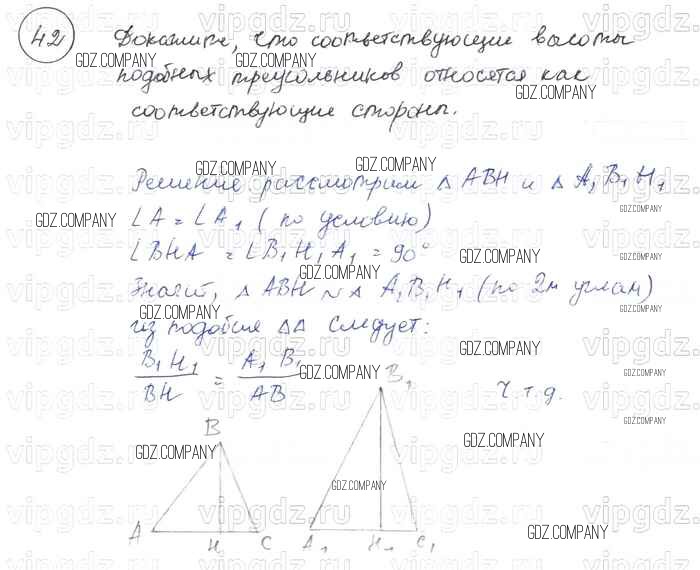 42
Докажите, что соответствующие высоты
подобных треугольников относятся как
соответствующие стороны.
Решение: рассмотрим Δ ABH и Δ A₁B₁H₁
∠A = ∠A₁ (по условию)
∠BHA = ∠B₁H₁A₁ = 90°
Значит, Δ ABH ~ Δ A₁B₁H₁ (по 2м углам)
из подобия ΔΔ следует:
B₁H₁/BH = A₁B₁/AB
ч.т.д.
B
B₁
A H C
A₁ H₁ C₁
GDZ.COMPANY
vipgdz.ru